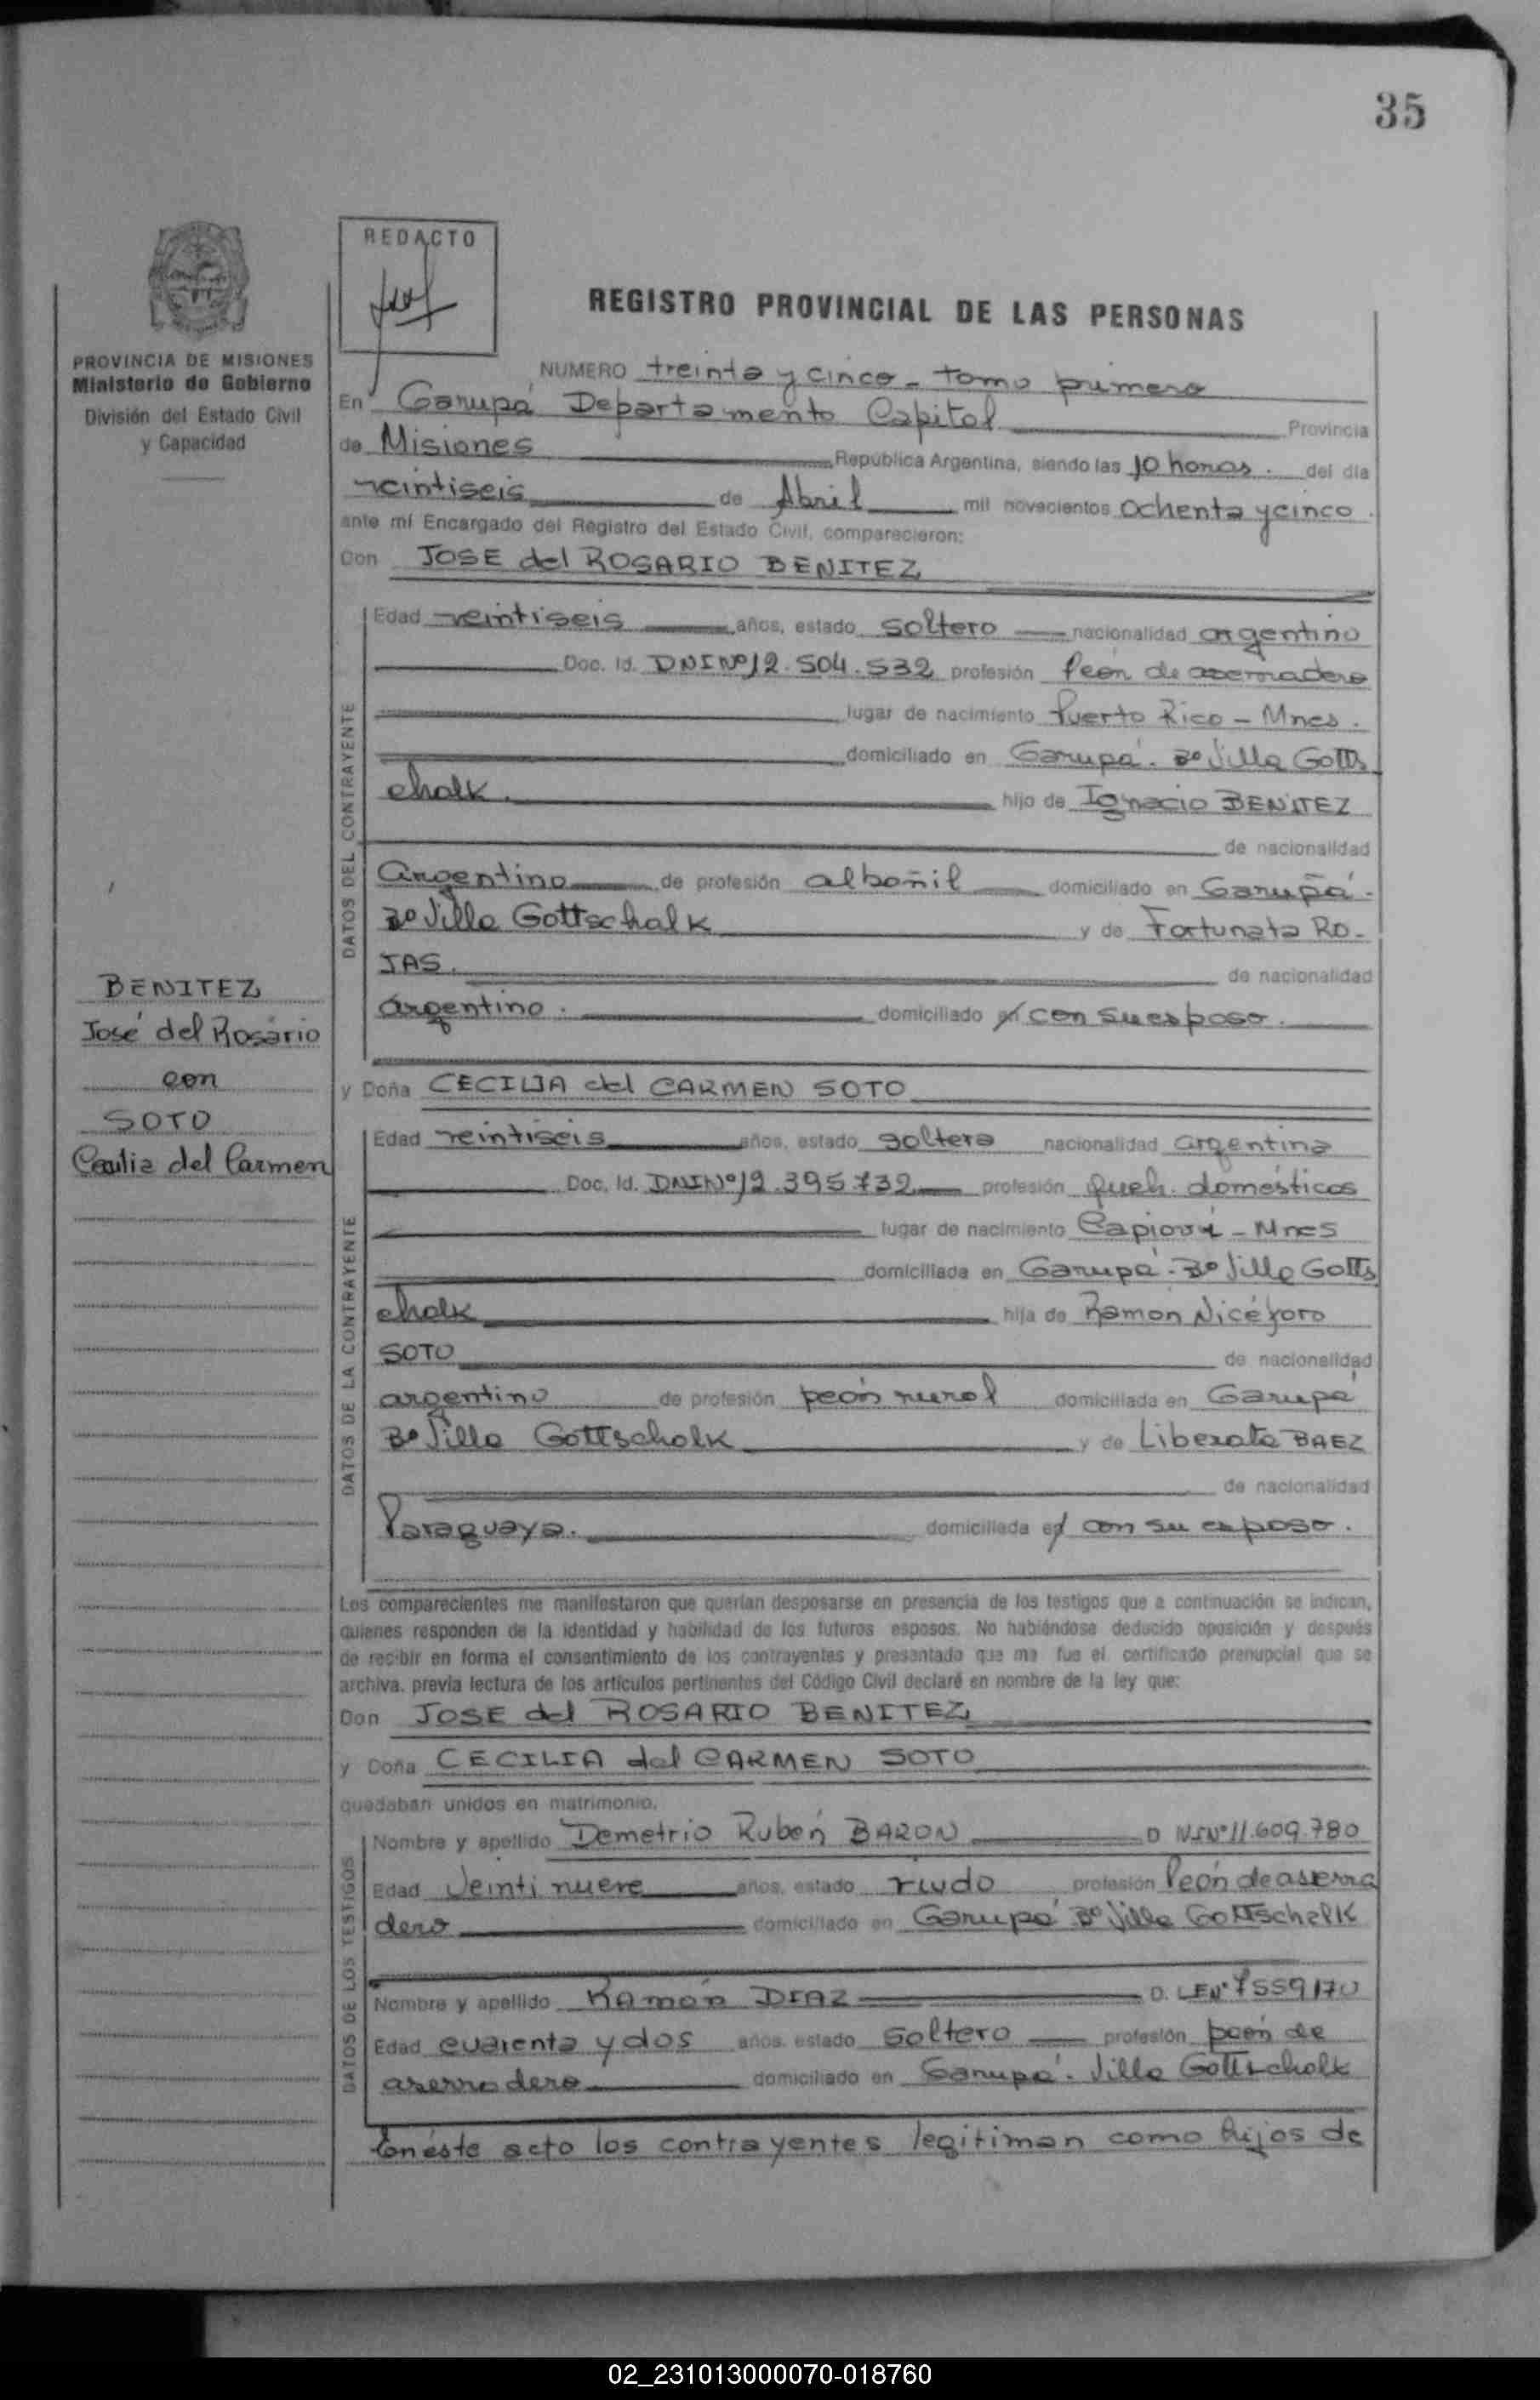 35
REDACTO
REGISTRO PROVINCIAL DE LAS PERSONAS
PROVINCIA DE MISIONES
Ministerio de Gobierno
División del Estado Civil
y Capacidad
NUMERO treinta y cinco - tomo primero
En Garupá Departamento Capital Provincia
de Misiones República Argentina, siendo las 10 horas. del día
veintiseis de Abril mil novecientos ochenta y cinco.
ante mí Encargado del Registro del Estado Civil, comparecieron:
Don JOSE del ROSARIO BENITEZ
DATOS DEL CONTRAYENTE
Edad veintiseis años, estado soltero nacionalidad argentino
Doc. Id. DNI Nº 12.504.532 profesión Peón de aserradero
lugar de nacimiento Puerto Rico - Mnes.
domiciliado en Garupá. Bº Villa Gotts
chalk. hijo de Ignacio BENITEZ
de nacionalidad
argentino de profesión albañil domiciliado en Garupá -
Bº Villa Gottschalk y de Fortunata RO-
JAS. de nacionalidad
argentino. domiciliado en con su esposo.
BENITEZ
José del Rosario
con
SOTO
Cecilia del Carmen
y Doña CECILIA del CARMEN SOTO
DATOS DE LA CONTRAYENTE
Edad veintiseis años, estado soltera nacionalidad argentina
Doc. Id. DNI Nº 12.395.732 profesión Queh. domésticos
lugar de nacimiento Capioví - Mnes
domiciliada en Garupá - Bº Villa Gotts
chalk hija de Ramón Nicéforo
SOTO de nacionalidad
argentino de profesión peón rural domiciliada en Garupá
Bº Villa Gottschalk y de Liberata BAEZ
de nacionalidad
Paraguaya. domiciliada en con su esposo.
Los comparecientes me manifestaron que querían desposarse en presencia de los testigos que a continuación se indican,
quienes responden de la identidad y habilidad de los futuros esposos. No habiéndose deducido oposición y después
de recibir en forma el consentimiento de los contrayentes y presentado que me fue el certificado prenupcial que se
archiva. previa lectura de los artículos pertinentes del Código Civil declaré en nombre de la ley que:
Don JOSE del ROSARIO BENITEZ
y Doña CECILIA del CARMEN SOTO
quedaban unidos en matrimonio.
DATOS DE LOS TESTIGOS
Nombre y apellido Demetrio Rubén BARON D NI Nº 11.609.780
Edad veintinueve años, estado viudo profesión Peón de aserra
dero domiciliado en Garupá Bº Villa Gottschalk
Nombre y apellido Ramón DIAZ D. LE Nº 7559170
Edad cuarenta y dos años, estado soltero profesión peón de
aserradero domiciliado en Garupá. Villa Gottschalk
En éste acto los contrayentes legitiman como hijos de
02_231013000070-018760